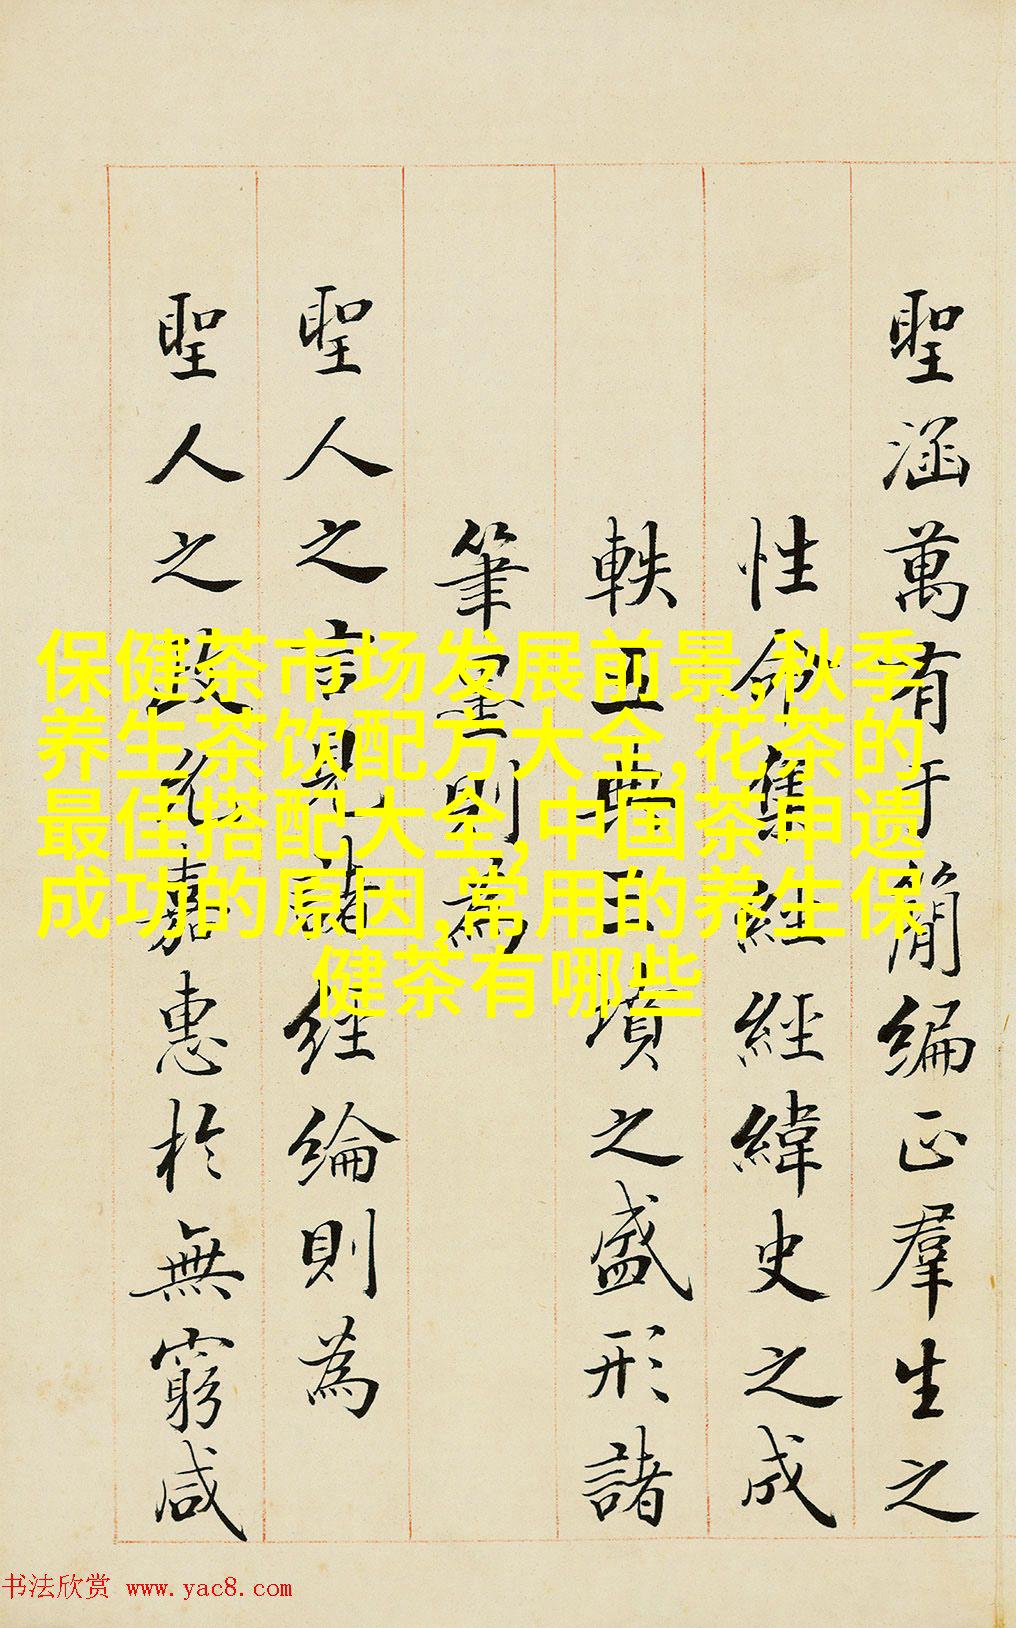 聖涵萬有于簡編正羣生之
性命集經經緯史之成
軼五典三墳之盛形諸
筆墨則為
聖人之言見諸經綸則為
聖人之政允嘉惠於無窮咸
保健茶市场发展前景,秋季
养生茶饮配方大全,花茶的
最佳搭配大全,中国茶申遗
成功的原因,常用的养生保
健茶有哪些
书法欣赏 www.yac8.com